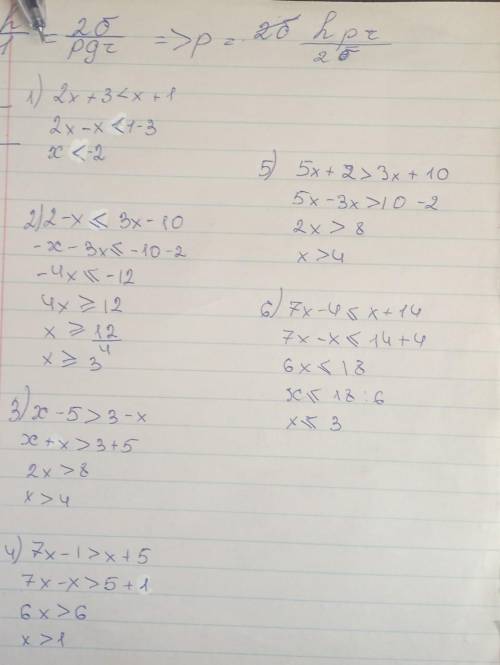 h/1 = 2б/pgr => p = 2б hpr/2б
1) 2x+3<x+1
2x-x<1-3
x<-2
2) 2-x⩽3x-10
-x-3x⩽-10-2
-4x⩽-12
4x⩾12
x⩾12/4
x⩾3
3) x-5>3-x
x+x>3+5
2x>8
x>4
4) 7x-1>x+5
7x-x>5+1
6x>6
x>1
5) 5x+2>3x+10
5x-3x>10-2
2x>8
x>4
6) 7x-4⩽x+14
7x-x⩽14+4
6x⩽18
x⩽18:6
x⩽3